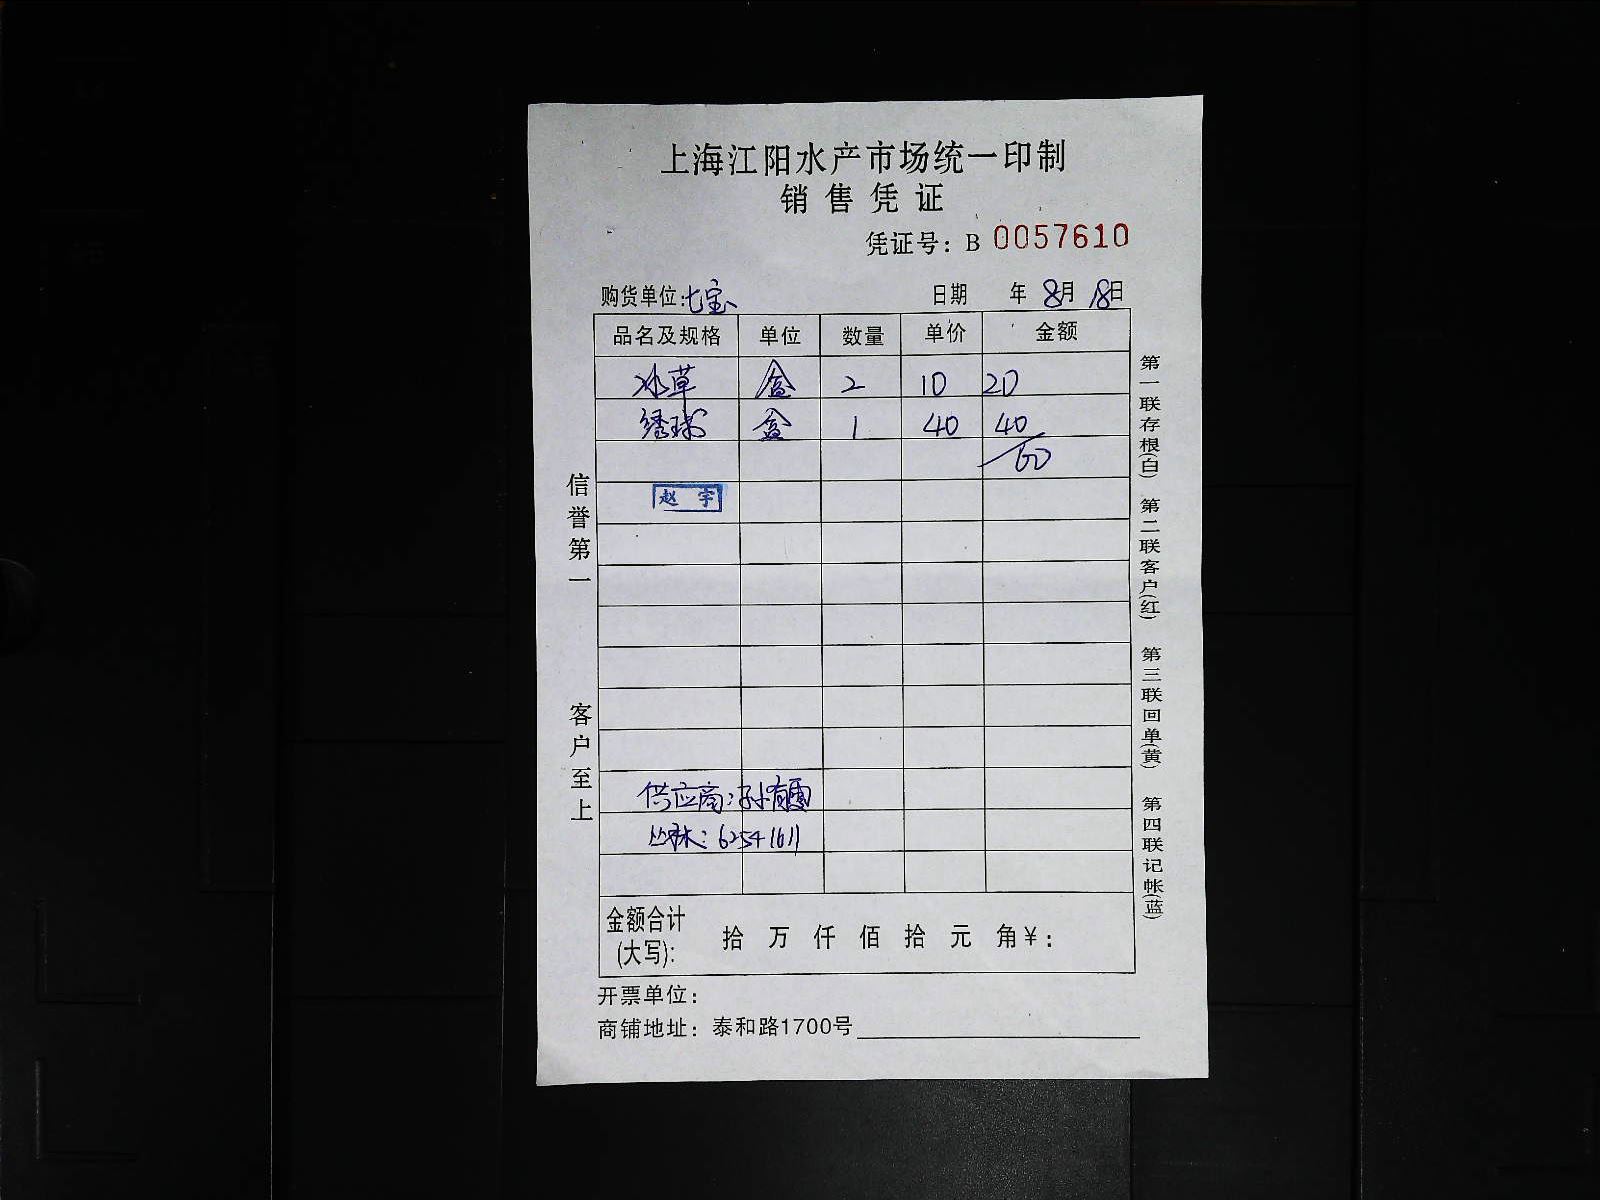 上海江阳水产市场统一印制
销售凭证
凭证号：B 0057610
购货单位：七宝 日期 年 8月 18日
品名及规格 单位 数量 单价 金额
冰草 盒 2 10 20
绣球 盒 1 40 40
60
赵宇
供应商：孙
丛林：62541611
金额合计(大写)： 拾 万 仟 佰 拾 元 角￥：
开票单位：
商铺地址：泰和路1700号
信誉第一
客户至上
第一联存根(白) 第二联客户(红) 第三联回单(黄) 第四联记帐(蓝)